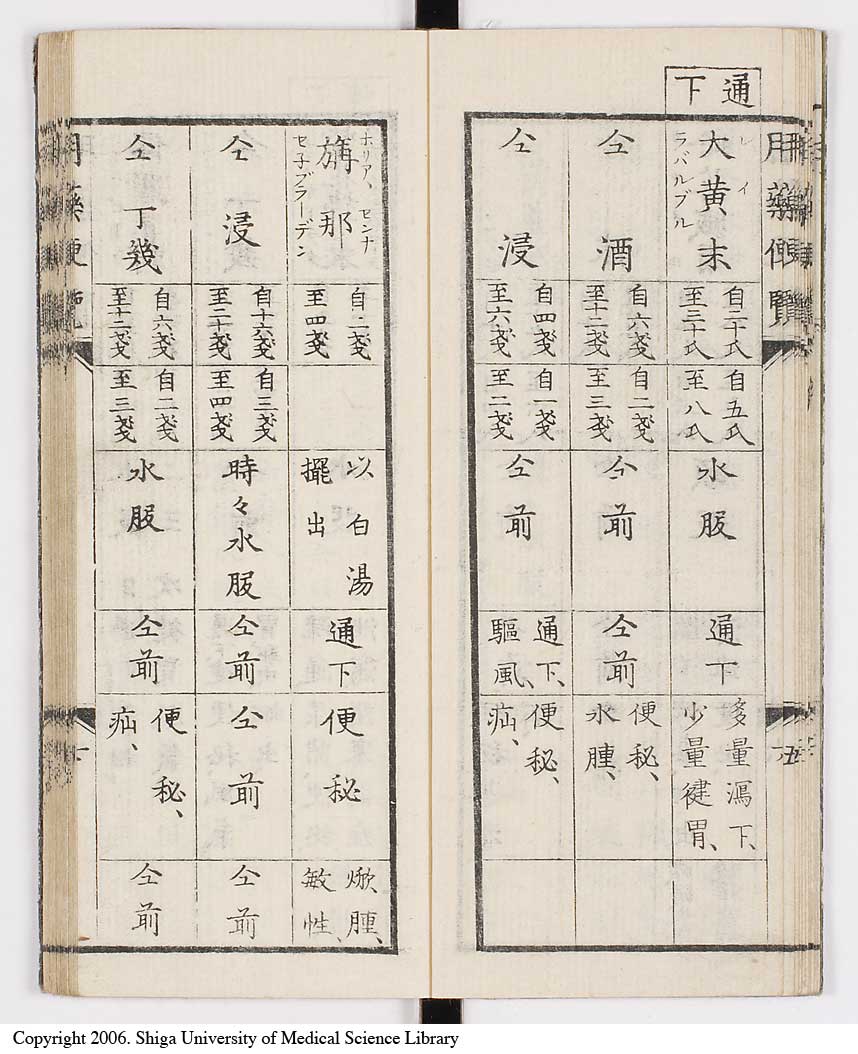 通下
用藥便覽
五
大黄末
レイ
ラバルブル
自二十氏
至三十氏
自五氏
至八氏
水服
通下
多量瀉下、
少量健胃、
仝酒
自六戔
至十二戔
自二戔
至三戔
仝前
仝前
便秘、
水腫、
仝浸
自四戔
至六戔
自一戔
至二戔
仝前
通下、
驅風、
便秘、
疝、
旃那
ホリア、センナ
セ子ブラーデン
自二戔
至四戔
以白湯
擺出
通下
便秘
焮腫、
敏性、
仝浸
自十六戔
至二十戔
自三戔
至四戔
時々水服
仝前
仝前
仝前
仝丁幾
自六戔
至十二戔
自二戔
至三戔
水服
仝前
便秘、
疝、
仝前
用藥便覽
Copyright 2006. Shiga University of Medical Science Library